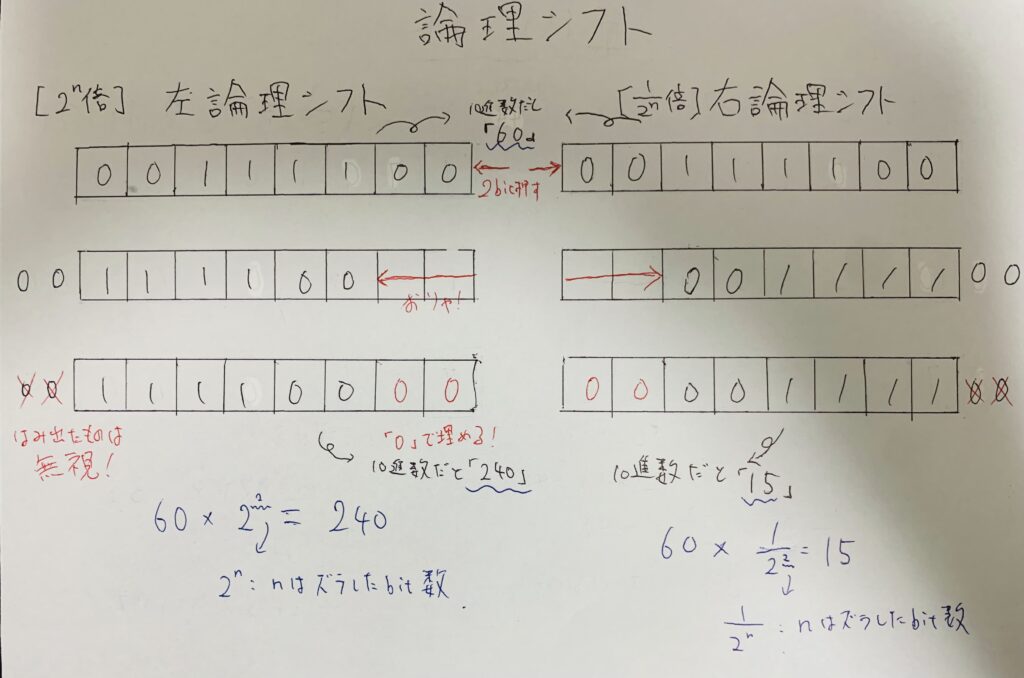 論理シフト
[2ⁿ倍] 左論理シフト
10進数だと
「60」
[1/2ⁿ倍] 右論理シフト
0 0 1 1 1 1 0 0
2bit押す
0 0 1 1 1 1 0 0
0 0 1 1 1 1 0 0
おりゃ!
0 0 1 1 1 1 0 0
0 0 1 1 1 1 0 0 0 0
0 0 0 0 1 1 1 1 0 0
はみ出たものは
無視!
「0」で埋める!
10進数だと「240」
10進数だと「15」
60 × 2² = 240
2ⁿ : nはズラしたbit数
60 × 1/2² = 15
1/2ⁿ : nはズラしたbit数